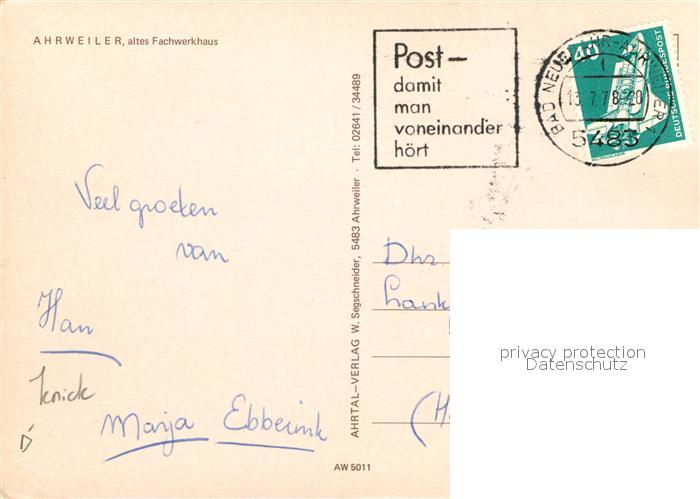 AHRWEILER, altes Fachwerkhaus
Post-
damit
man
voneinander
hört
BAD NEUENAHR-AHRWEILER 1
13.7.78-20
5483
40
DEUTSCHE BUNDESPOST
Veel groeten
van
Han
knick
Marja Ebberink
AHRTAL-VERLAG W. Segschneider, 5483 Ahrweiler - Tel: 02641 / 34489
Dhr.
(H
privacy protection
Datenschutz
AW 5011